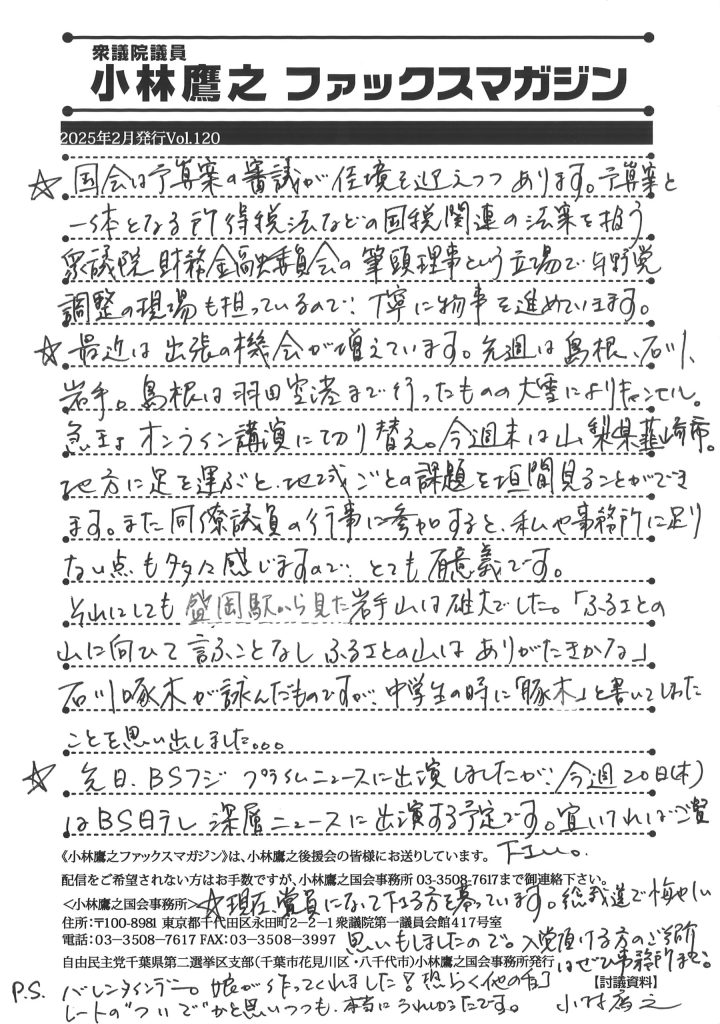 衆議院議員
小林鷹之 ファックスマガジン
2025年2月発行Vol.120
☆ 国会は予算案の審議が佳境を迎えつつあります。予算案と
一体となる所得税法などの国税関連の法案を扱う
衆議院財務金融委員会の筆頭理事という立場で与野党
調整の現場も担っているので、丁寧に物事を進めていきます。
☆ 最近は出張の機会が増えています。先週は島根、石川、
岩手。島根は羽田空港まで行ったものの大雪によりキャンセル。
急きょオンライン講演に切り替え。今週末は山梨県韮崎市。
地方に足を運ぶと、地域ごとの課題を垣間見ることができ
ます。また同僚議員の行事に参加すると、私や事務所に足り
ない点も多々感じますので、とても有意義です。
それにしても盛岡駅から見た岩手山は雄大でした。「ふるさとの
山に向ひて言ふことなし ふるさとの山は ありがたきかな」
石川啄木が詠んだものですが、中学生の時に「豚木」と書いてしまった
ことを思い出しました。。。
☆ 先日、BSフジ プライムニュースに出演しましたが、今週20日(木)
はBS日テレ 深層ニュースに出演する予定です。宜しければご覧
下さい。
《小林鷹之ファックスマガジン》は、小林鷹之後援会の皆様にお送りしています。
配信をご希望されない方はお手数ですが、小林鷹之国会事務所 03-3508-7617まで御連絡下さい。
<小林鷹之国会事務所>
☆現在、党員になって下さる方を募っています。総裁選で悔しい
住所:〒100-8981 東京都千代田区永田町2-2-1衆議院第一議員会館417号室
電話:03-3508-7617 FAX:03-3508-3997
思いもしましたので。入党頂ける方のご紹介
自由民主党千葉県第二選挙区支部(千葉市花見川区・八千代市)小林鷹之国会事務所発行
はぜひ事務所まで。
【討議資料】
P.S. バレンタインデー。娘が作ってくれました!恐らく他の
レートの"ついで"かと思いつつも、本当にうれしかったです。
小林鷹之